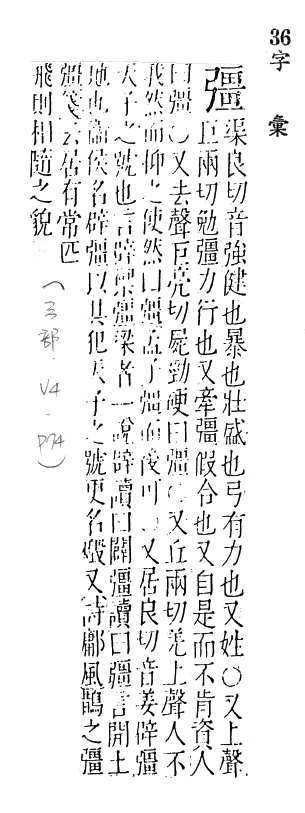 36字彙
彊
渠良切音強健也暴也壯盛也弓有力也又姓○又上聲
丘兩切勉彊力行也又牽彊假合也又自是而不肯資人
曰彊○又去聲巨亮切屍勁硬曰彊○又丘兩切羌上聲人不
我然而仰之使然曰彊孟子彊而後可○又居良切音姜辟彊
天子之號也言辟禦彊梁者一說辟讀曰闢彊讀曰疆言開土
地也衞侯名辟彊以其犯天子之號更名燬又詩鄘風鶉之彊
彊箋云居有常匹
飛則相隨之貌
(弓部 V4. P74)